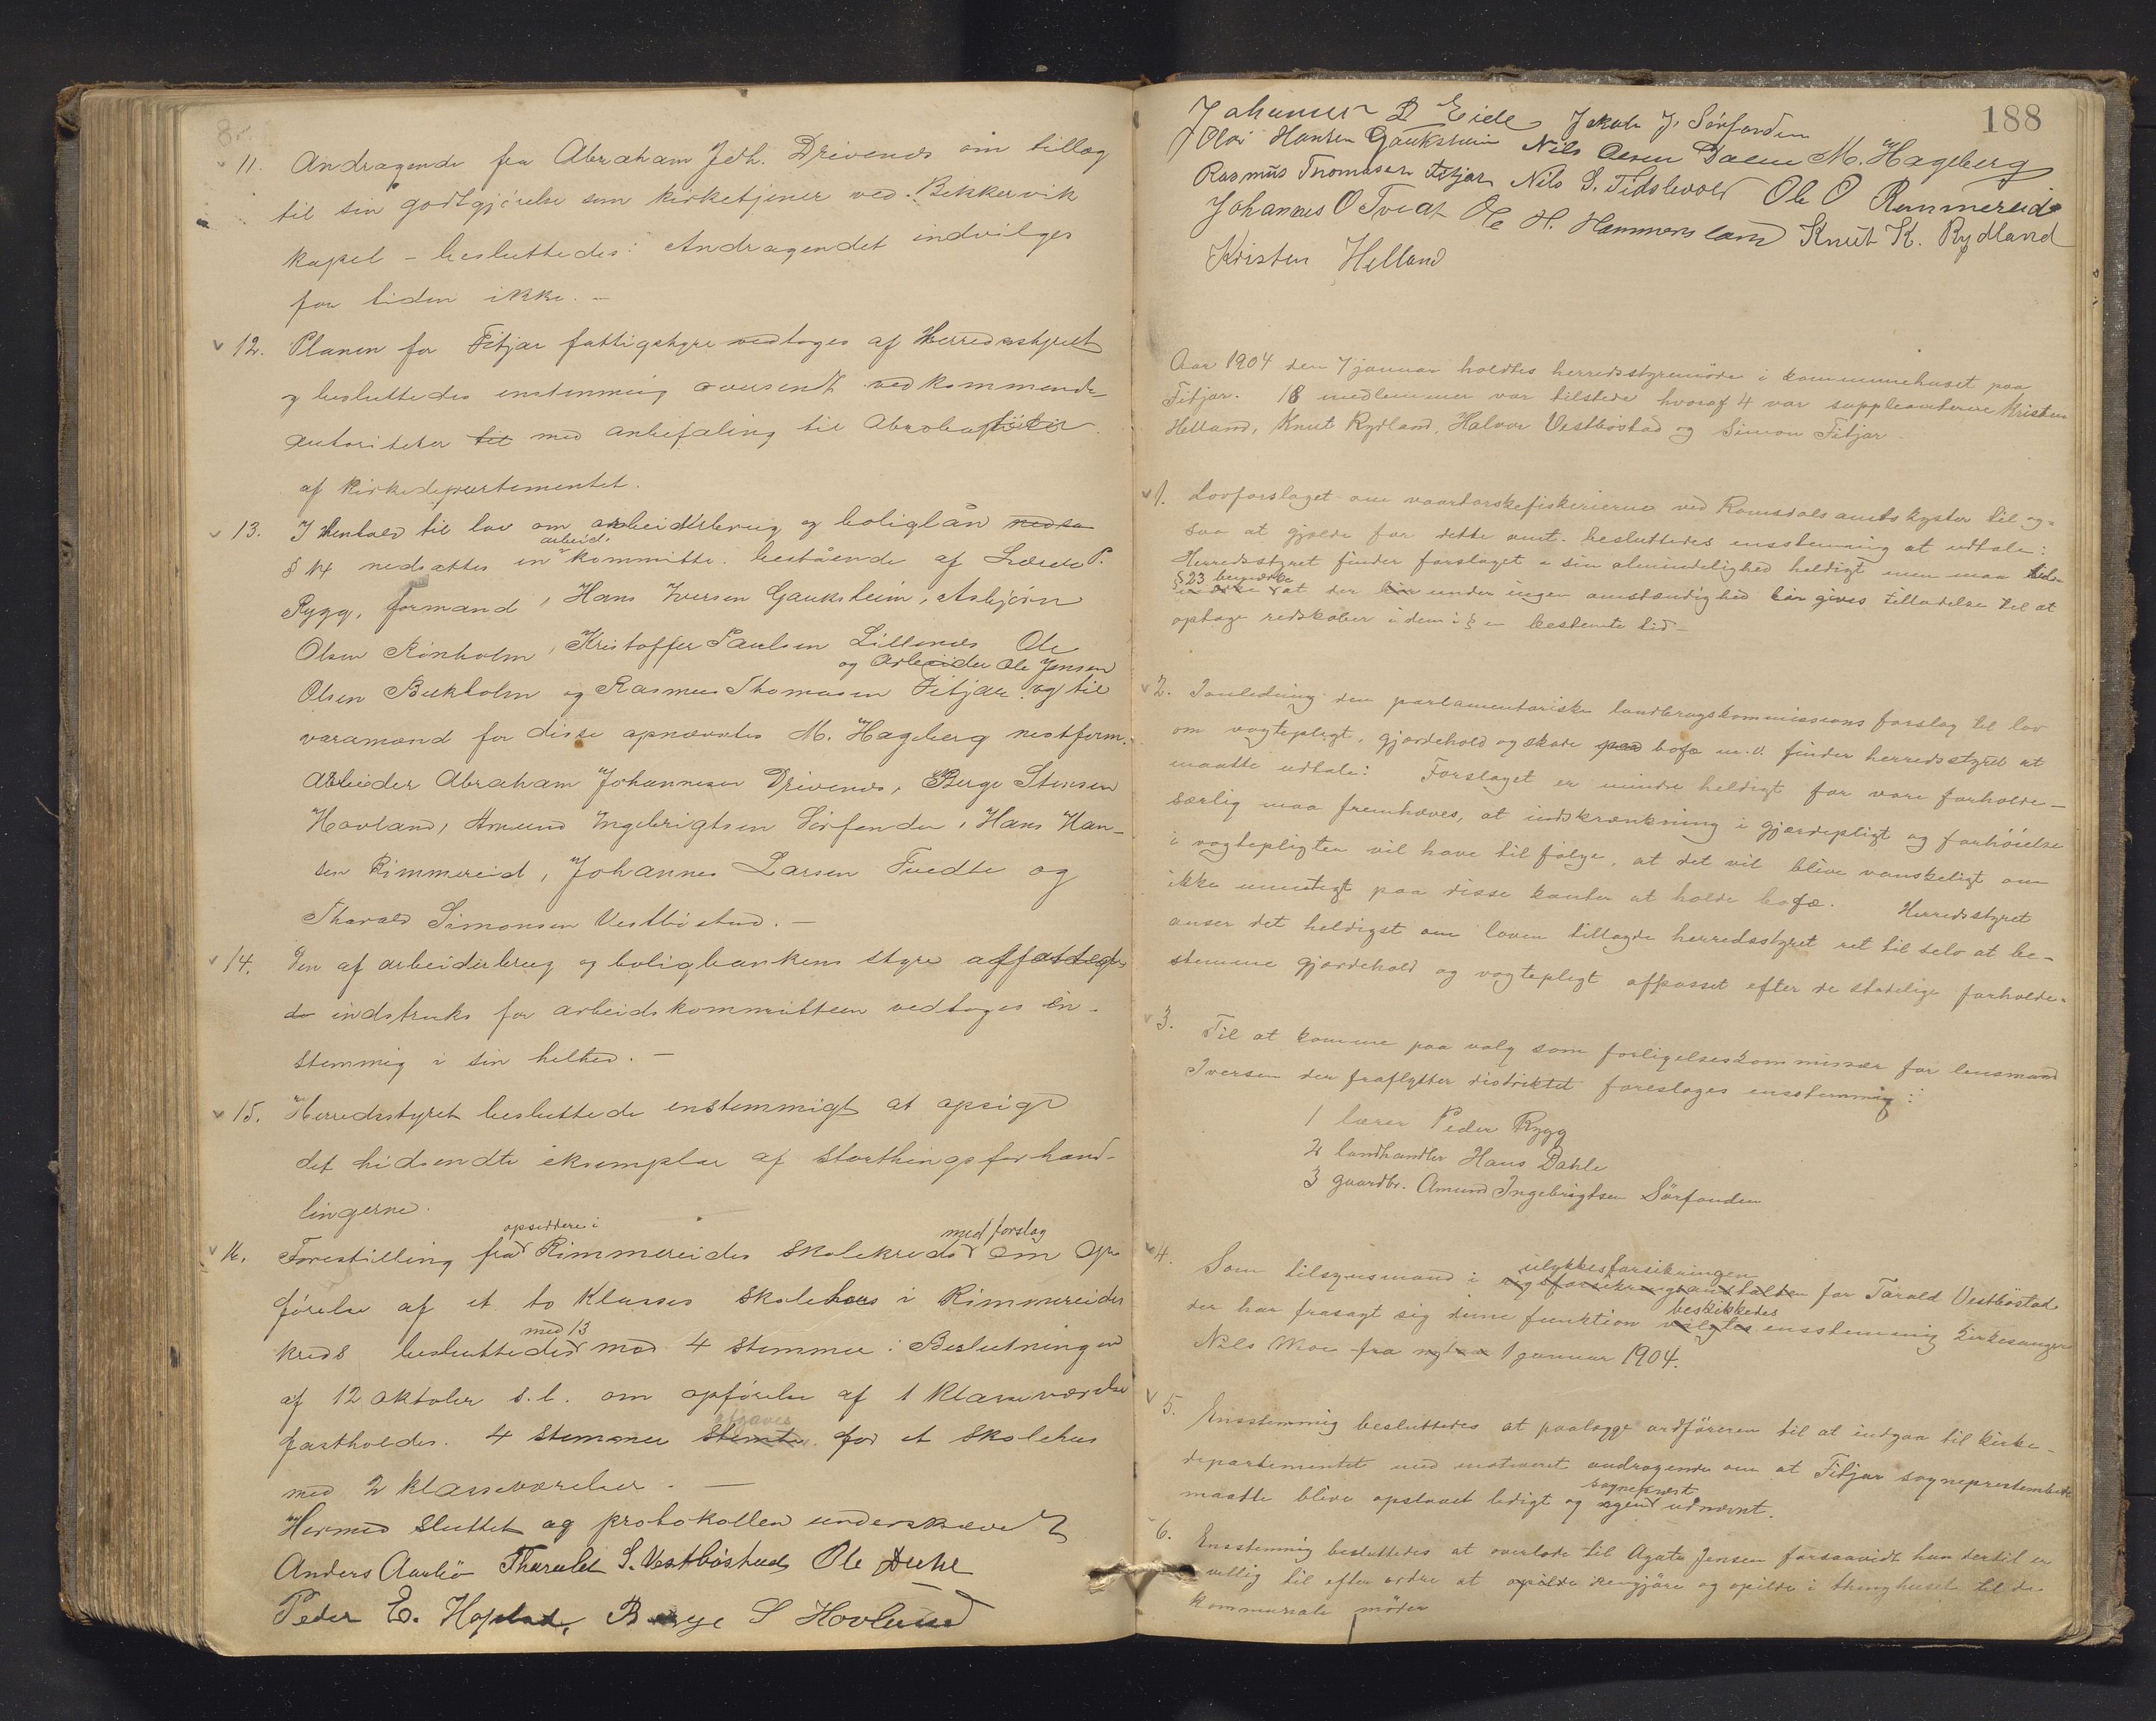 11. Andragende fra Abraham Joh. Drivenes om tillæg
til sin godtgjørelse som kirketjener ved Bekkervik
kapel – besluttedes: Andragendet indvilges
for tiden ikke. –
12. Planen for Fitjar fattigstyre vedtoges af Herredsstyret
og besluttedes enstemmig oversendt vedkommende
autoriteter til med anbefaling til Abrobation
af kirkedepartementet.
13. I Henhold til lov om arbeiderbrug og boliglån nedsa
§ 14 nedsættes en arbeids kommitte bestående af Lærer P.
Rygg, formand, Hans Iversen Gauksheim, Asbjørn
Olsen Rimholm, Kristoffer Paulsen Lillenes Ole
og Arbeider Ole Jensen
Olsen Bukholm og Rasmus Thomasen Fitjar. og til
varamænd for disse opnævntes M. Hageberg nestform.
Arbeider Abraham Johannesen Drivenes, Berge Stensen
Hovland, Amund Ingebrigtsen Sörfonden, Hans Han-
sen Rimmereid, Johannes Larsen Tvedte og
Tharald Simonsen Vestbøstad. –
14. Den af arbeiderbrug og boligbankens styre affattede
de indstruks for arbeidskommitteen vedtoges en-
stemmig i sin helhed. –
15. Herredsstyret besluttede enstemmigt at opsige
det hidsendte eksemplar af storthingsforhand-
lingerne.
16. Forestilling fra opsiddere i Rimmereides skolekreds med forslag om op-
førelse af et to Klasses skolehus i Rimmereides
kreds besluttedes med 13 mod 4 stemmer: Beslutningen
af 12 oktober s.l. om opførelse af 1 klasseværelse
fastholdes. 4 stemmer stemte afgaves for et skolehus
med 2 klasseværelser. –
Hermed sluttet og protokollen underskrevet
Anders Aarbö Tharald S. Vestbøstad Ole Dehle
Peder E. Hopland, Berge S Hovland
188
Johannes D Eide Jakob J. Sörfonden
Olai Hansen Gauksheim Nils Olsen Dalen M. Hageberg
Rasmus Thomasen Fitjar Nils S. Tislevold Ole O Remmereid
Johannes O Tveit Ole H. Hammersland Knut K. Rydland
Kristen Helland
Aar 1904 den 7 januar holdtes herredsstyremøde i kommunehuset paa
Fitjar. 18 medlemmer var tilstede hvoraf 4 var suppleanterne Kristen
Helland, Knut Rydland, Halvor Vestbøstad og Simon Fitjar.
1. Lovforslaget om vaartorskefiskerierne ved Romsdals amts kyster til og-
saa at gjelde for dette amt. besluttedes ensstemmig at udtale:
Herredsstyret finder forslaget i sin almindelighed heldigt men maa til
§ 23 bemærke at der bör under ingen omstændighed bör gives tilladelse til at
optage redskaber i den i § en bestemte tid –
2. I anledning den parlamentariske landbrugskommissions forslag til lov
om vogtepligt, gjærdehold og skade paa bofæ m.v. finder herredsstyret at
maatte udtale: Forslaget er mindre heldigt for vore forholde –
særlig maa fremhæves, at indskrænkning i gjærdepligt og forhöielse
i vogtepligten vil have til følge, at det vil blive vanskeligt om
ikke umuligt paa disse kanter at holde bofæ. Herredsstyret
anser det heldigst om loven tillagde herredsstyret ret til selv at be-
stemme gjærdehold og vogtepligt afpasset efter de stedelige forholde.
3. Til at komme paa valg som forligelseskommissær for lensmand
Iversen der fraflytter distriktet foresloges ensstemmig:
1 lærer Peder Rygg
2 landhandler Hans Dahle
3 gaardbr. Amund Ingebrigtsen Sörfonden
4. Som tilsynsmand i rigsforsikringsanstalten ulykkesforsikringen for Tarald Vestböstad
der har frasagt sig denne funktion valgtes beskikkedes ensstemmig kirkesanger
Nils Moe fra 1 januar 1904.
5. Ensstemmig besluttedes at paalægge ordføreren til at indgaa til kirke-
departementet med motiveret andragende om at Fitjar sogneprestembede
maatte blive opslaaet ledigt og sogneprest udnævnt.
6. Ensstemmig besluttedes at overlade til Agate Jensen forsaavidt hun dertil er
villig til efter ordre at opilde rengjøre og opilde i thinghuset til de
kommunale møder